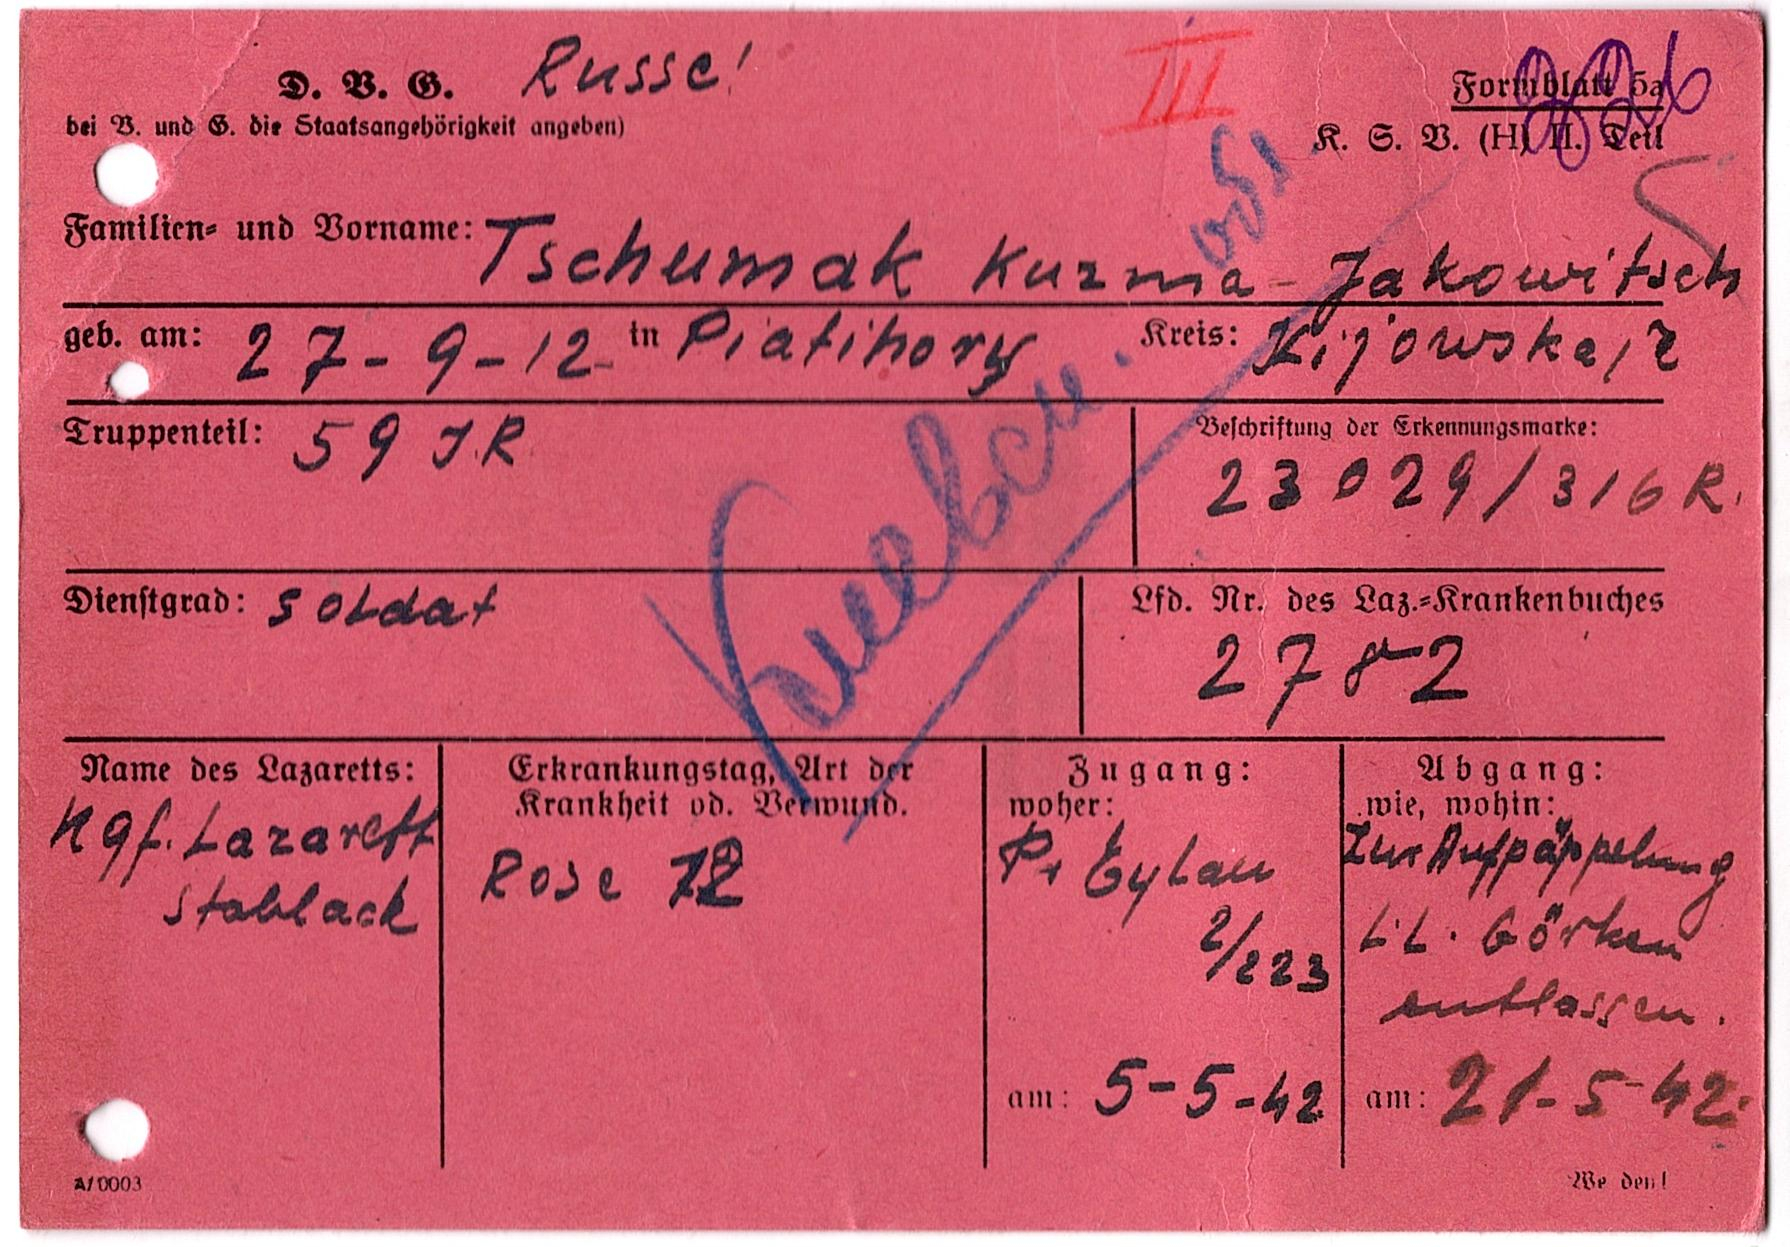 D. V. G. Russe!
III
Formblatt 5a
bei V. und G. die Staatsangehörigkeit angeben)
K. S. V. (H) II. Teil
Familien- und Vorname: Tschumak Kuzma-Jakowitsch
geb. am: 27-9-12 in Piatihory Kreis: Kijowska/2
Truppenteil: 59 J.R
Beschriftung der Erkennungsmarke:
23029/316 R.
Dienstgrad: Soldat
Lfd. Nr. des Laz.-Krankenbuches
2782
Киевск. обл.
Name des Lazaretts:
Kgf. Lazarett
Stablack
Erkrankungstag, Art der
Krankheit od. Verwund.
Rose
Zugang:
woher:
Pr Eylau
2/223
am: 5-5-42
Abgang:
wie, wohin:
Zur Aufpäppelung
Görken
entlassen.
am: 21-5-42.
A/0003